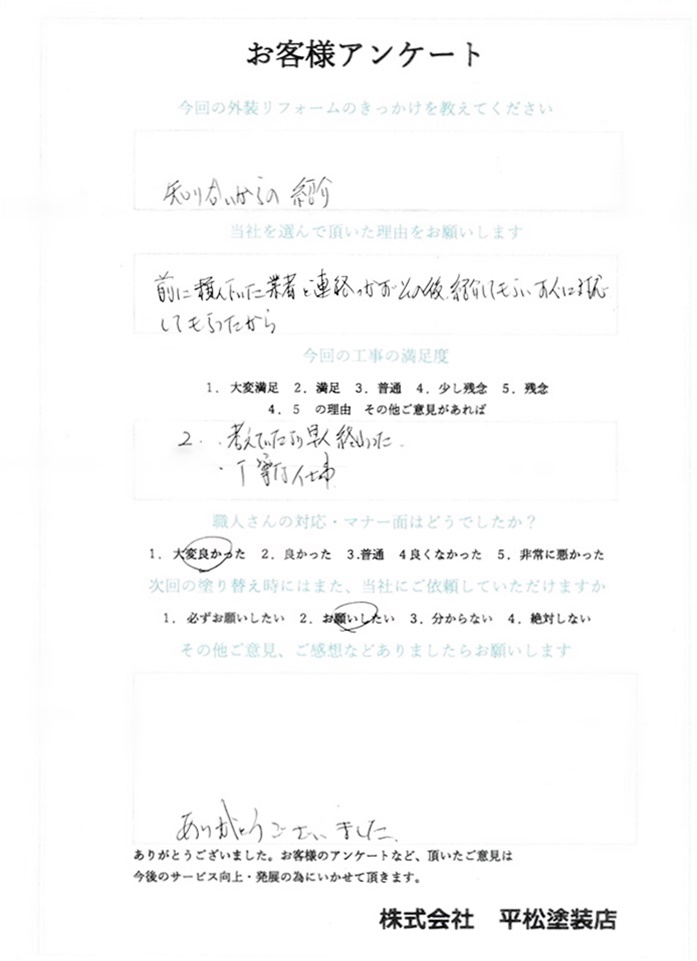 お客様アンケート
今回の外装リフォームのきっかけを教えてください
知り合いからの 紹介
当社を選んで頂いた理由をお願いします
前に頼んでいた業者と連絡つかずその後、紹介してもらいすぐに対応
してもらったから
今回の工事の満足度
1. 大変満足 2. 満足 3. 普通 4. 少し残念 5. 残念
4. 5 の理由 その他ご意見があれば
2. ・考えていたより早く終わった
・丁寧な仕事
職人さんの対応・マナー面はどうでしたか?
1. 大変良かった 2. 良かった 3.普通 4良くなかった 5. 非常に悪かった
次回の塗り替え時にはまた、当社にご依頼していただけますか
1. 必ずお願いしたい 2. お願いしたい 3. 分からない 4. 絶対しない
その他ご意見、ご感想などありましたらお願いします
ありがとうございました
ありがとうございました。お客様のアンケートなど、頂いたご意見は
今後のサービス向上・発展の為にいかせて頂きます。
株式会社 平松塗装店